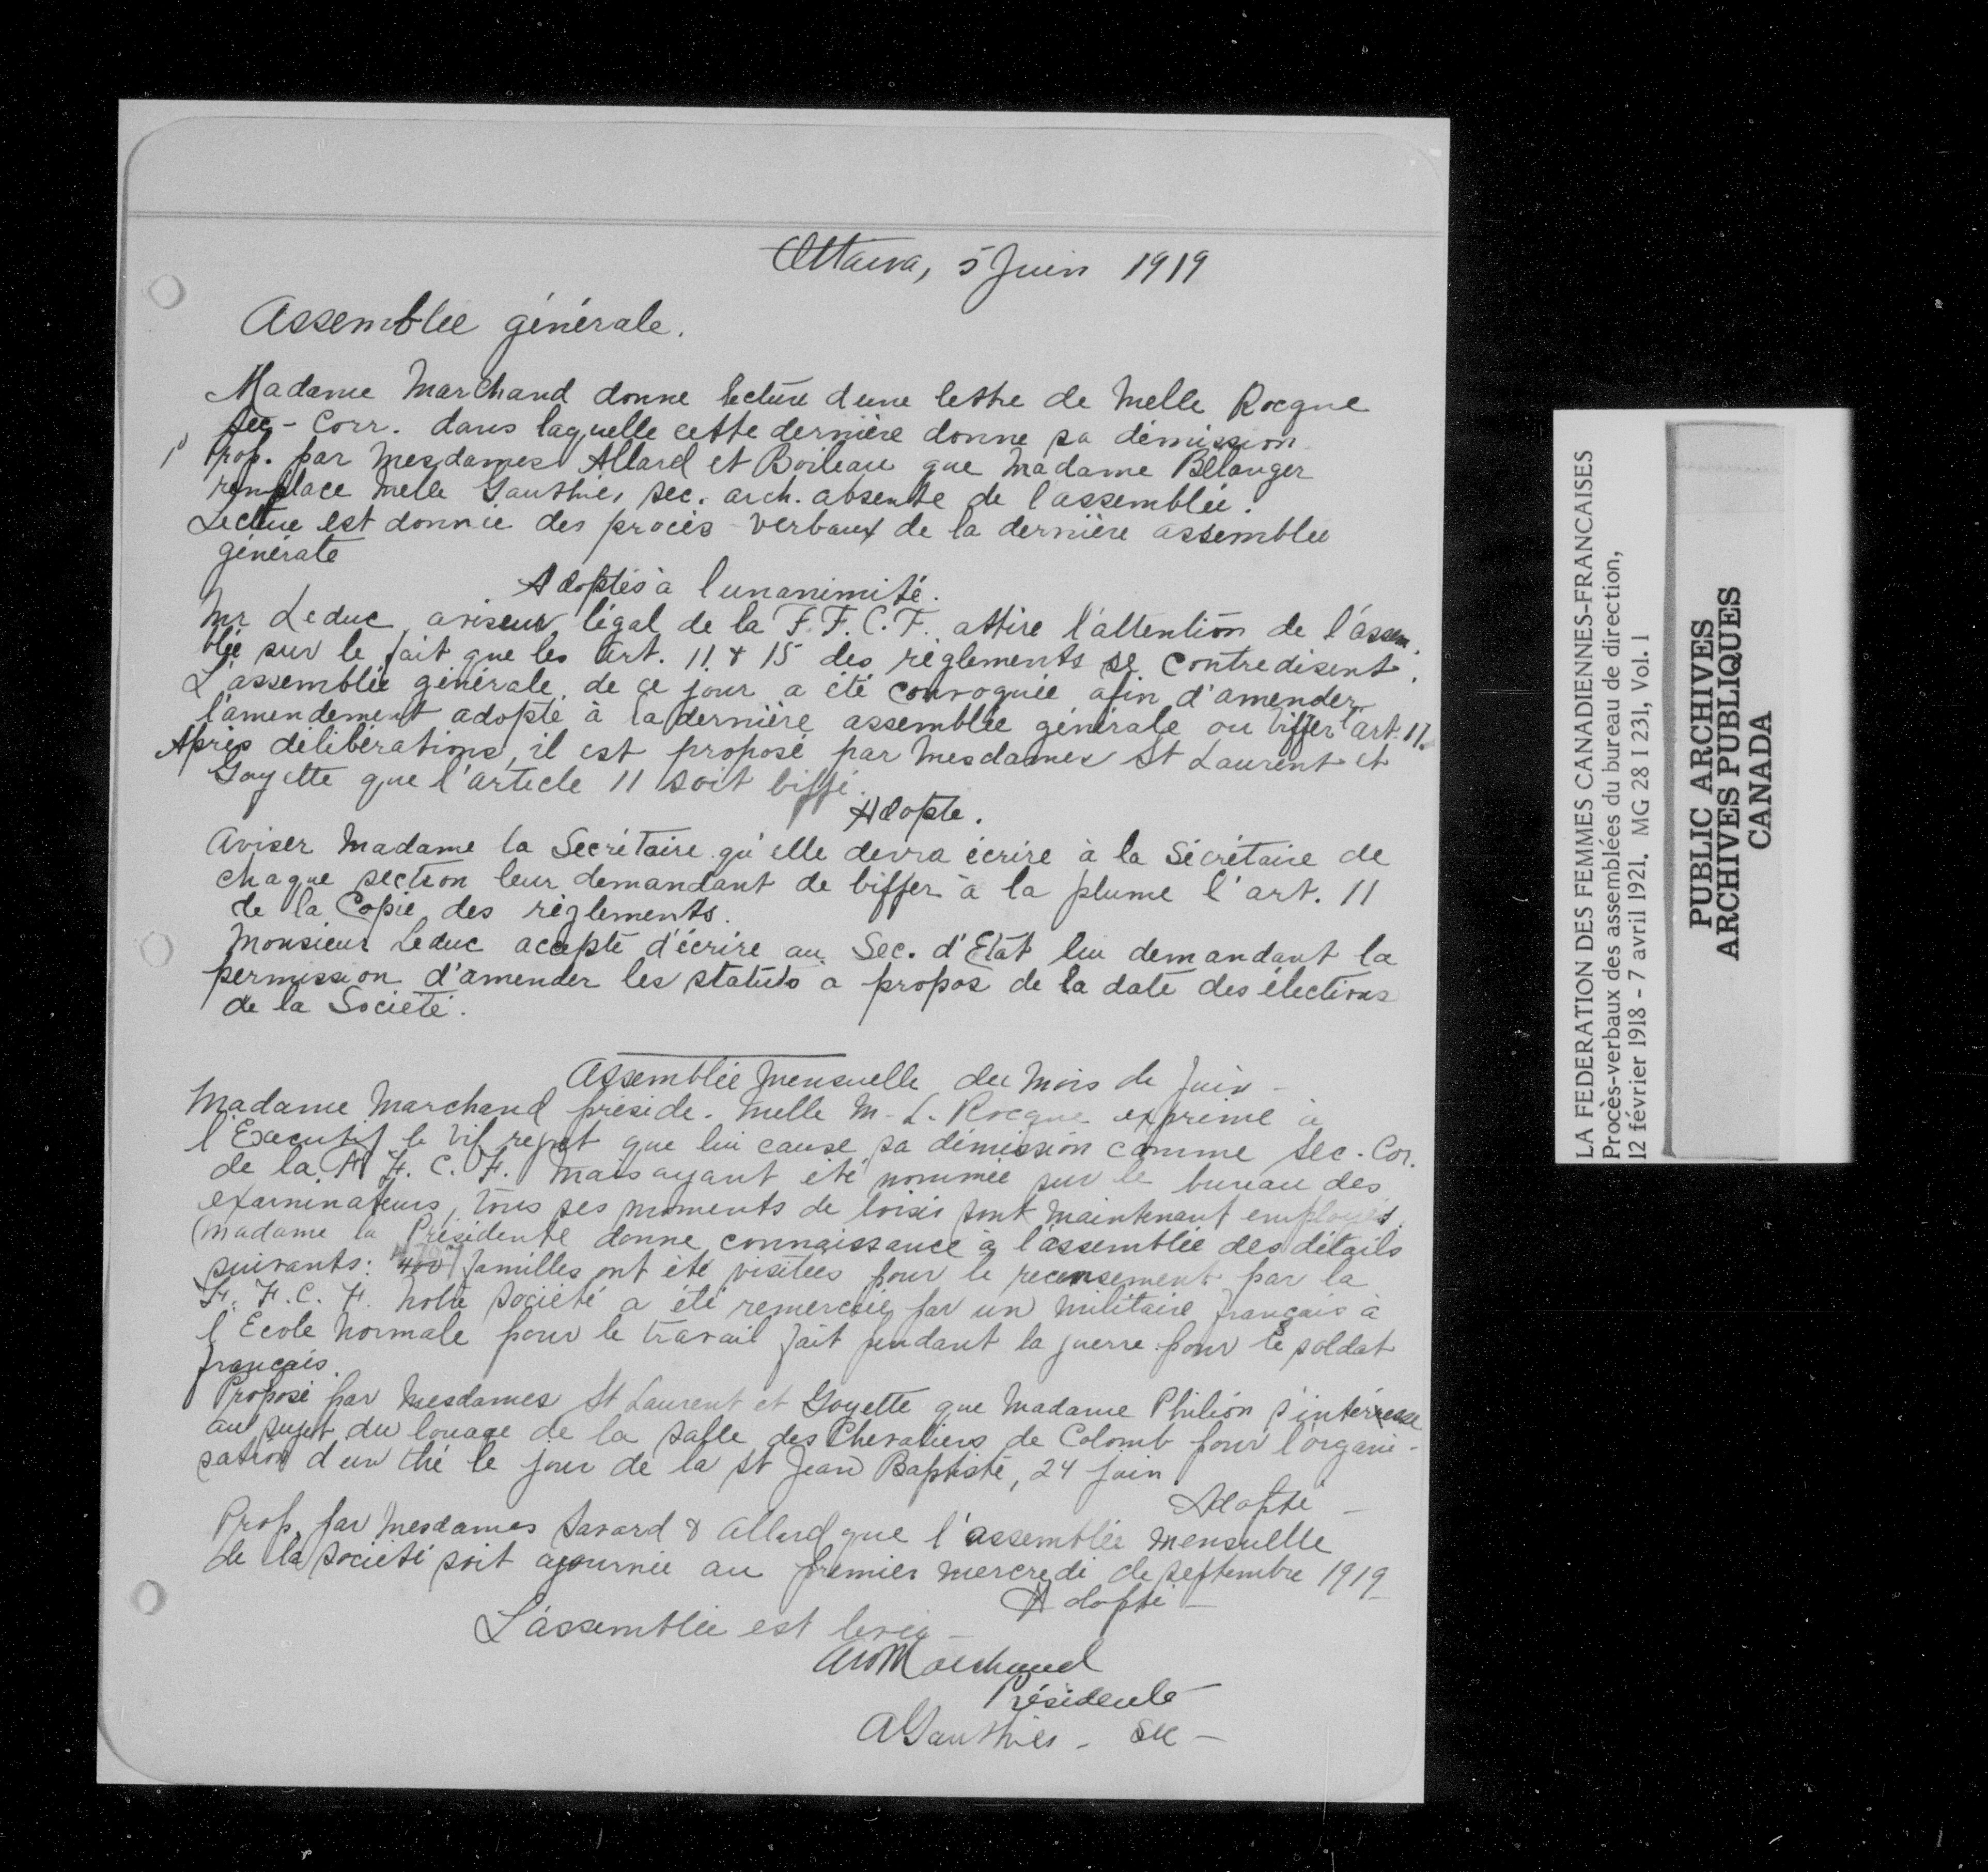 Ottawa, 5 Juin 1919
Assemblée générale.
Madame Marchand donne lecture d'une lettre de Melle Rocque
Sec-Corr. dans laquelle cette dernière donne sa démission
1° Prop. par Mesdames Allard et Boileau que Madame Bélanger
remplace Melle Gauthier, sec. arch. absente de l'assemblée.
Lecture est donnée des procès-verbaux de la dernière assemblée
générale
Adoptés à l'unanimité.
Mr Leduc, aviseur légal de la F.F.C.F. attire l'attention de l'assem.
blée sur le fait que les Art. 11 & 15 des règlements se contredisent.
L'assemblée générale de ce jour a été convoquée afin d'amender
l'amendement adopté à la dernière assemblée générale ou biffer l'art. 11.
Après délibérations, il est proposé par Mesdames St Laurent et
Goyette que l'article 11 soit biffé.
Adopté.
Aviser Madame la Secrétaire qu'elle devra écrire à la Sécrétaire de
chaque section leur demandant de biffer à la plume l'art. 11
de la Copie des règlements.
Monsieur Leduc acepte d'écrire au Sec. d'Etat lui demandant la
permission d'amender les statuts à propos de la date des élections
de la Société.
Assemblée mensuelle du mois de Juin -
Madame Marchand préside. Melle M-L. Rocque exprime à
l'Executif le vif regret que lui cause sa démission comme Sec. Cor.
de la F. F. C. F. Mais ayant été nommée sur le bureau des
examinateurs, tous ses moments de loisir sont maintenant employés.
Madame la Présidente donne connaissance à l'assemblée des détails
suivants: familles ont été visitées pour le recensement par la
F. F. C. F. Notre société a été remerciée par un militaire français à
l'Ecole Normale pour le travail fait pendant la guerre pour le soldat
français.
Proposé par Mesdames St Laurent et Goyette que Madame Philion s'intéresse
au sujet du louage de la salle des Chevaliers de Colomb pour l'organi-
sation d'un thé le jour de la St Jean Baptiste, 24 juin.
Adopté -
Prop. par Mesdames Savard & Allard que l'assemblée mensuelle
de la société soit ajournée au premier mercredi de septembre 1919
Adopté -
L'assemblée est levée -
Marchand
Présidente
A Gauthier - Sec -
LA FEDERATION DES FEMMES CANADIENNES-FRANCAISES
Procès-verbaux des assemblées du bureau de direction,
12 février 1918 - 7 avril 1921. MG 28 I 231, Vol. 1
PUBLIC ARCHIVES
ARCHIVES PUBLIQUES
CANADA